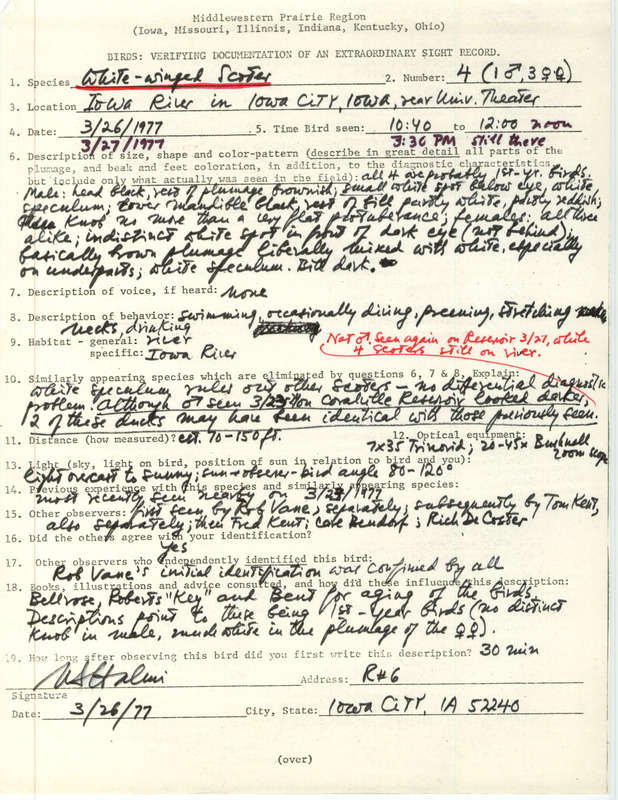 Middlewestern Prairie Region
(Iowa, Missouri, Illinois, Indiana, Kentucky, Ohio)
BIRDS: VERIFYING DOCUMENTATION OF AN EXTRAORDINARY SIGHT RECORD.
1. Species White-winged Scoter 2. Number: 4 (1♂, 3♀♀)
3. Location Iowa River in Iowa City, Iowa, near Univ. Theater
4. Date: 3/26/1977 5. Time Bird seen: 10:40 to 12:00 noon
3/27/1977 3:30 PM still there
6. Description of size, shape and color-pattern (describe in great detail all parts of the
plumage, and beak and feet coloration, in addition, to the diagnostic characteristics,
but include only what actually was seen in the field): all 4 are probably 1st-yr. birds.
Male: head black, rest of plumage brownish; small white spot below eye, white
speculum; lower mandible black, rest of bill partly white, partly reddish;
Knob no more than a very flat protuberance; females: all three
alike; indistinct white spot in front of dark eye (not behind);
basically brown plumage liberally mixed with white, especially
on underparts; white speculum. Bill dark.
7. Description of voice, if heard: none
8. Description of behavior: swimming, occasionally diving, preening, stretching
necks, drinking
9. Habitat - general: river
specific: Iowa River
Not ♂. Seen again on Reservoir 3/27, while
4 scoters still on river.
10. Similarly appearing species which are eliminated by questions 6, 7 & 8, Explain:
White speculum rules out other scoters - no differential diagnostic
problem. Although ♂ seen 3/23 on Coralville Reservoir looked darker,
2 of these ducks may have been identical with those previously seen.
11. Distance (how measured)? est. 70-150 ft. 12. Optical equipment:
7x35 Trinovid; 20-45x Bushnell
zoom scope
13. Light (sky, light on bird, position of sun in relation to bird and you):
light overcast to sunny; sun-observer-bird angle 80-120°
14. Previous experience with this species and similarly appearing species:
most recently seen nearby on 3/23/1977
15. Other observers: first seen by Rob Vane, separately; subsequently by Tom Kent,
also separately; then Fred Kent; Bendorf; Rich DeCoster
16. Did the others agree with your identification?
yes
17. Other observers who independently identified this bird:
Rob Vane's initial identification was confirmed by all
18. Books, illustrations and advice consulted, and how did these influence this description:
Bellrose, Roberts "Key" and Bent for aging of the birds.
Descriptions point to these being 1st-year birds (no distinct
knob in male, much white in the plumage of the ♀♀).
19. How long after observing this bird did you first write this description? 30 min
NSHalmi Address: R#6
Signature
Date: 3/26/77 City, State: Iowa City, IA 52240
(over)